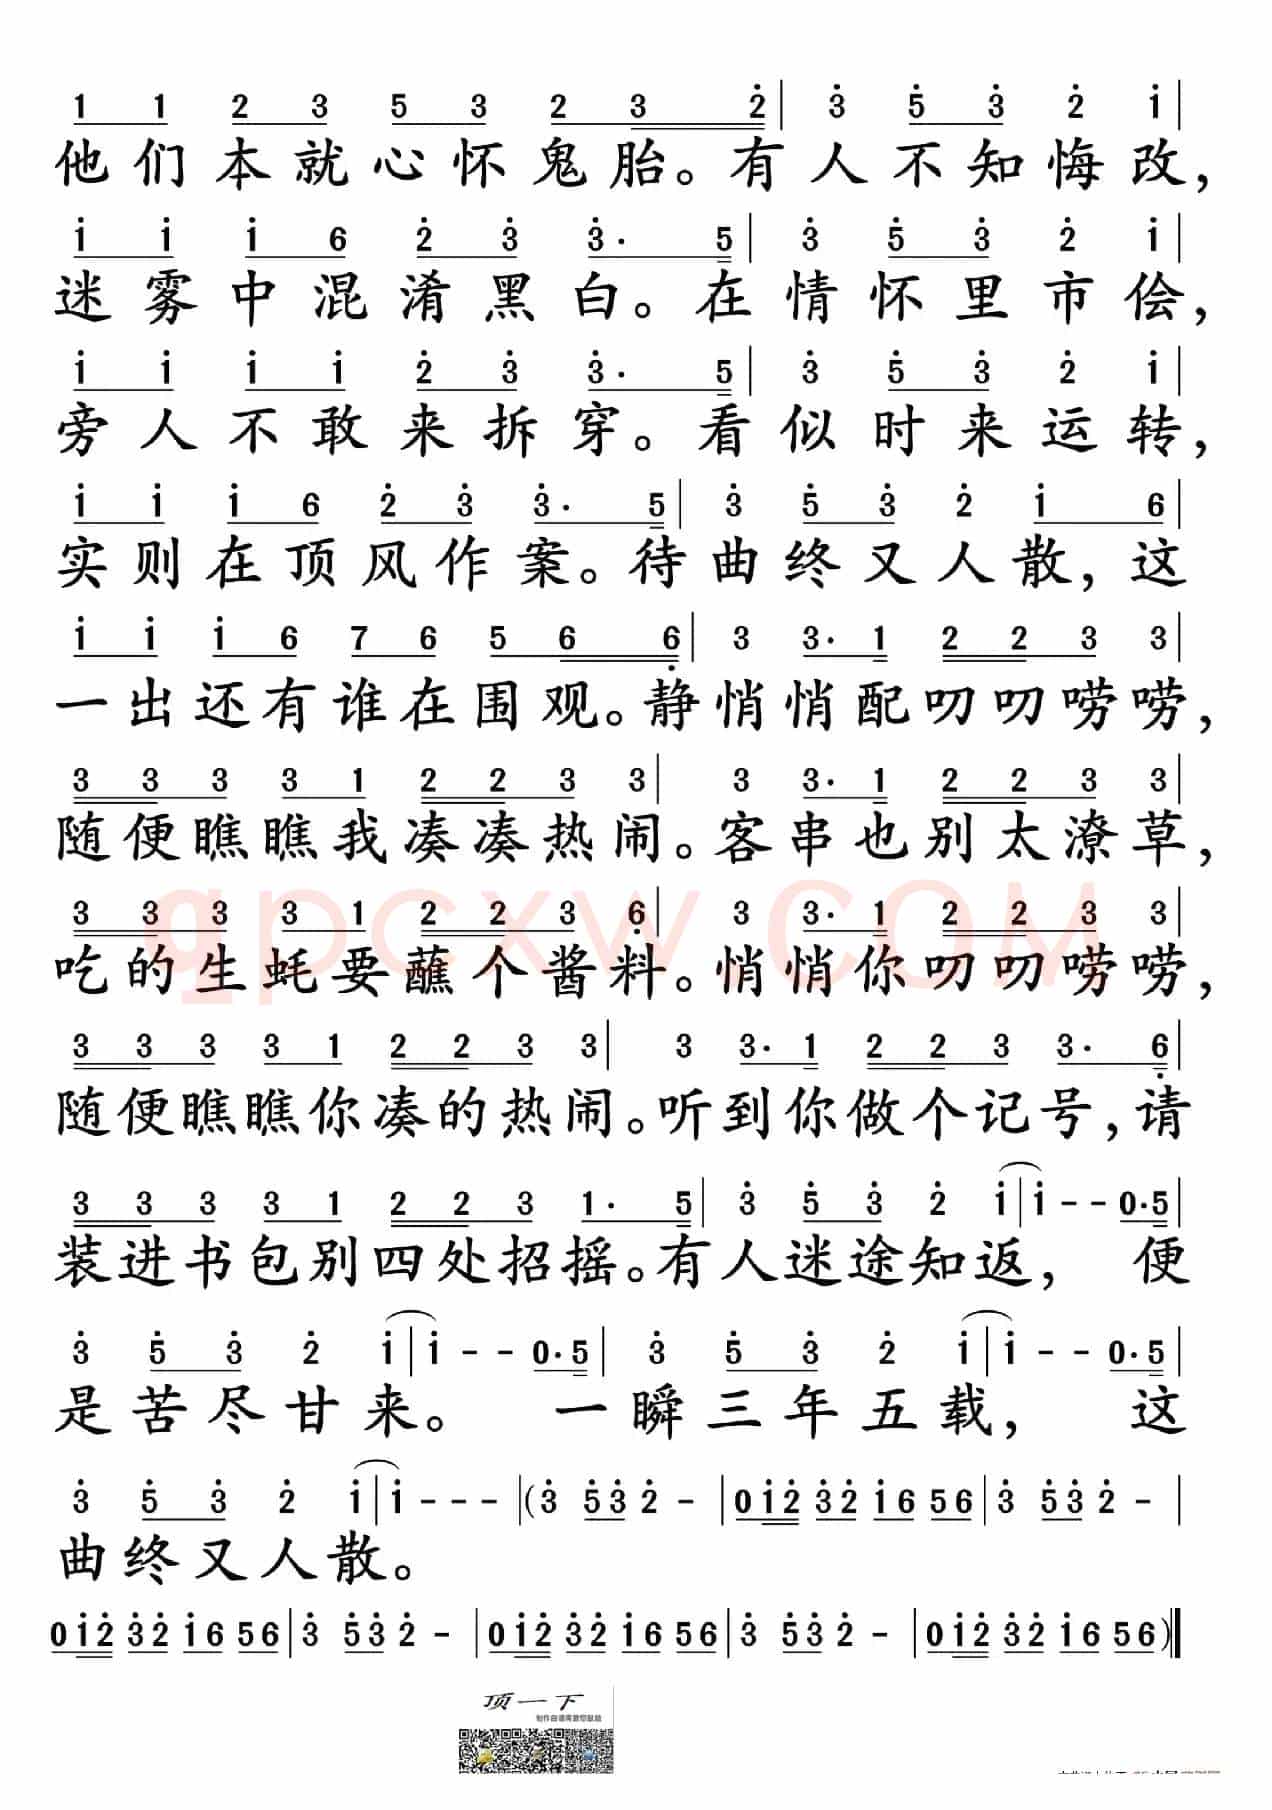 1 1 2 3 5 3 2 3 2̇ | 3̇ 5̇ 3̇ 2̇ 1̇ |
他们本就心怀鬼胎。有人不知悔改，
1̇ 1̇ 1̇ 6 2̇ 3̇ 3̇· 5̇ | 3̇ 5̇ 3̇ 2̇ 1̇ |
迷雾中混淆黑白。在情怀里市侩，
1̇ 1̇ 1̇ 1̇ 2̇ 3̇ 3̇· 5̇ | 3̇ 5̇ 3̇ 2̇ 1̇ |
旁人不敢来拆穿。看似时来运转，
1̇ 1̇ 1̇ 6 2̇ 3̇ 3̇· 5̇ | 3̇ 5̇ 3̇ 2̇ 1̇ 6 |
实则在顶风作案。待曲终又人散，这
1̇ 1̇ 1̇ 6 7 6 5 6 6̣ | 3 3· 1 2 2 3 3 |
一出还有谁在围观。静悄悄配叨叨唠唠，
3 3 3 3 1 2 2 3 3 | 3 3· 1 2 2 3 3 |
随便瞧瞧我凑凑热闹。客串也别太潦草，
3 3 3 3 1 2 2 3 6̣ | 3 3· 1 2 2 3 3 |
qpcxw.COM
吃的生蚝要蘸个酱料。悄悄你叨叨唠唠，
3 3 3 3 1 2 2 3 3 | 3 3· 1 2 2 3 3· 6̣ |
随便瞧瞧你凑的热闹。听到你做个记号，请
3 3 3 3 1 2 2 3 1· 5̇ | 3̇ 5̇ 3̇ 2̇ 1̇ | 1̇ - - 0·5̇ |
装进书包别四处招摇。有人迷途知返，便
3̇ 5̇ 3̇ 2̇ 1̇ | 1̇ - - 0·5̇ | 3̇ 5̇ 3̇ 2̇ 1̇ | 1̇ - - 0·5̇ |
是苦尽甘来。一瞬三年五载，这
3̇ 5̇ 3̇ 2̇ 1̇ | 1̇ - - - | (3̇ 5̇3̇ 2̇ - | 01̇2̇ 3̇2̇ 1̇6 56 | 3̇ 5̇3̇ 2̇ - |
曲终又人散。
01̇2̇ 3̇2̇ 1̇6 56 | 3̇ 5̇3̇ 2̇ - | 01̇2̇ 3̇2̇ 1̇6 56 | 3̇ 5̇3̇ 2̇ - | 01̇2̇ 3̇2̇ 1̇6 56) ‖
顶一下